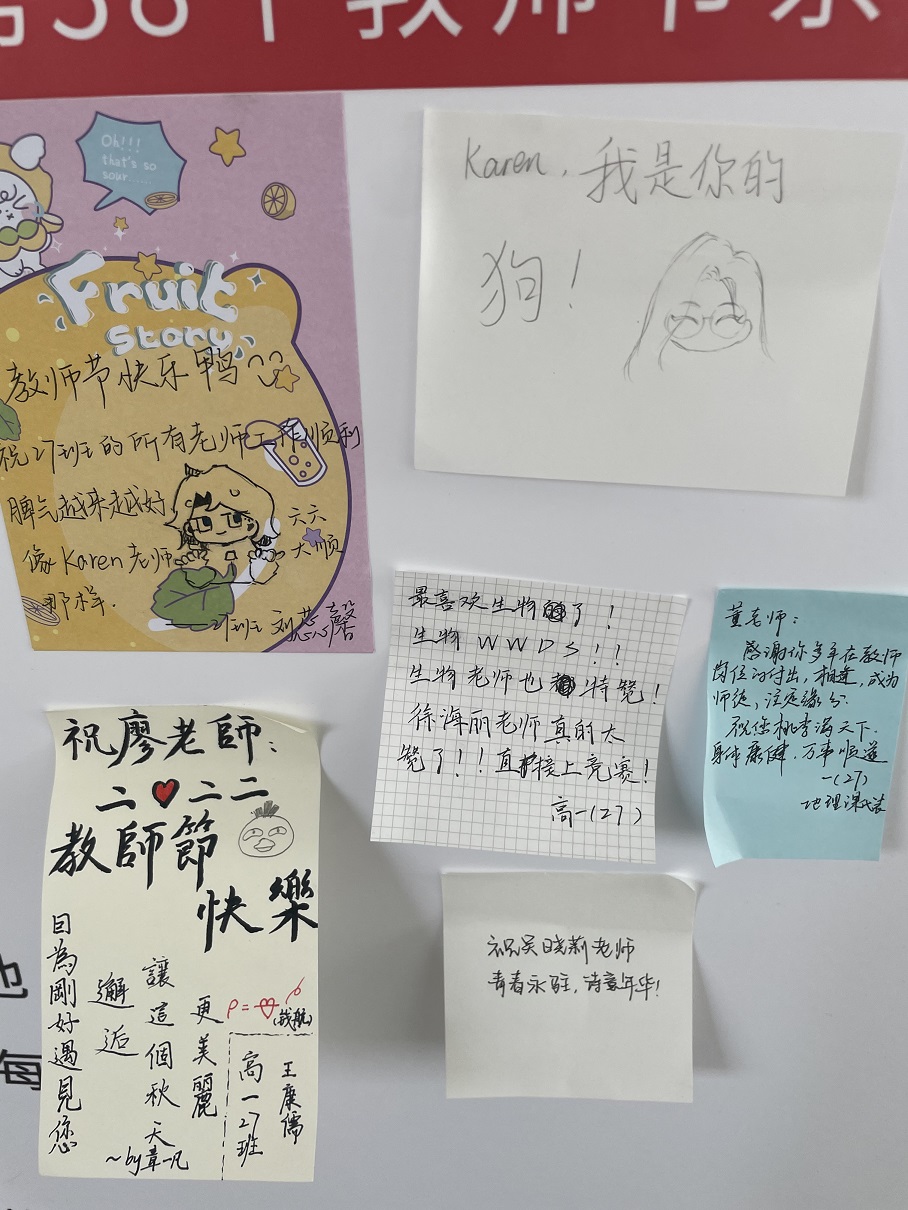 第38个教师节系
Oh!!!
that's so
sour......
Fruit
Story
教师节快乐鸭
祝27班的所有老师工作顺利
脾气越来越好
像Karen老师
那样.
六六
大顺
27班 刘慈馨
Karen, 我是你的
狗!
最喜欢生物了!
生物WWDS!!
生物老师也特赞!
徐海丽老师真的太
赞了!!直接上竞赛!
高一(27)
董老师:
感谢你多年在教师
岗位的付出,相逢,成为
师徒,注定缘分.
祝您桃李满天下.
身体康健,万事顺遂
一(27)
地理课代表
祝廖老師:
二❤二二
教師節
快樂
因為剛好遇見您
邂逅
讓這個秋天
更美麗
~by章一凡
ρ=
高一27班
王康儒
祝吴晓莉老师
青春永驻,诗意年华!
地
海